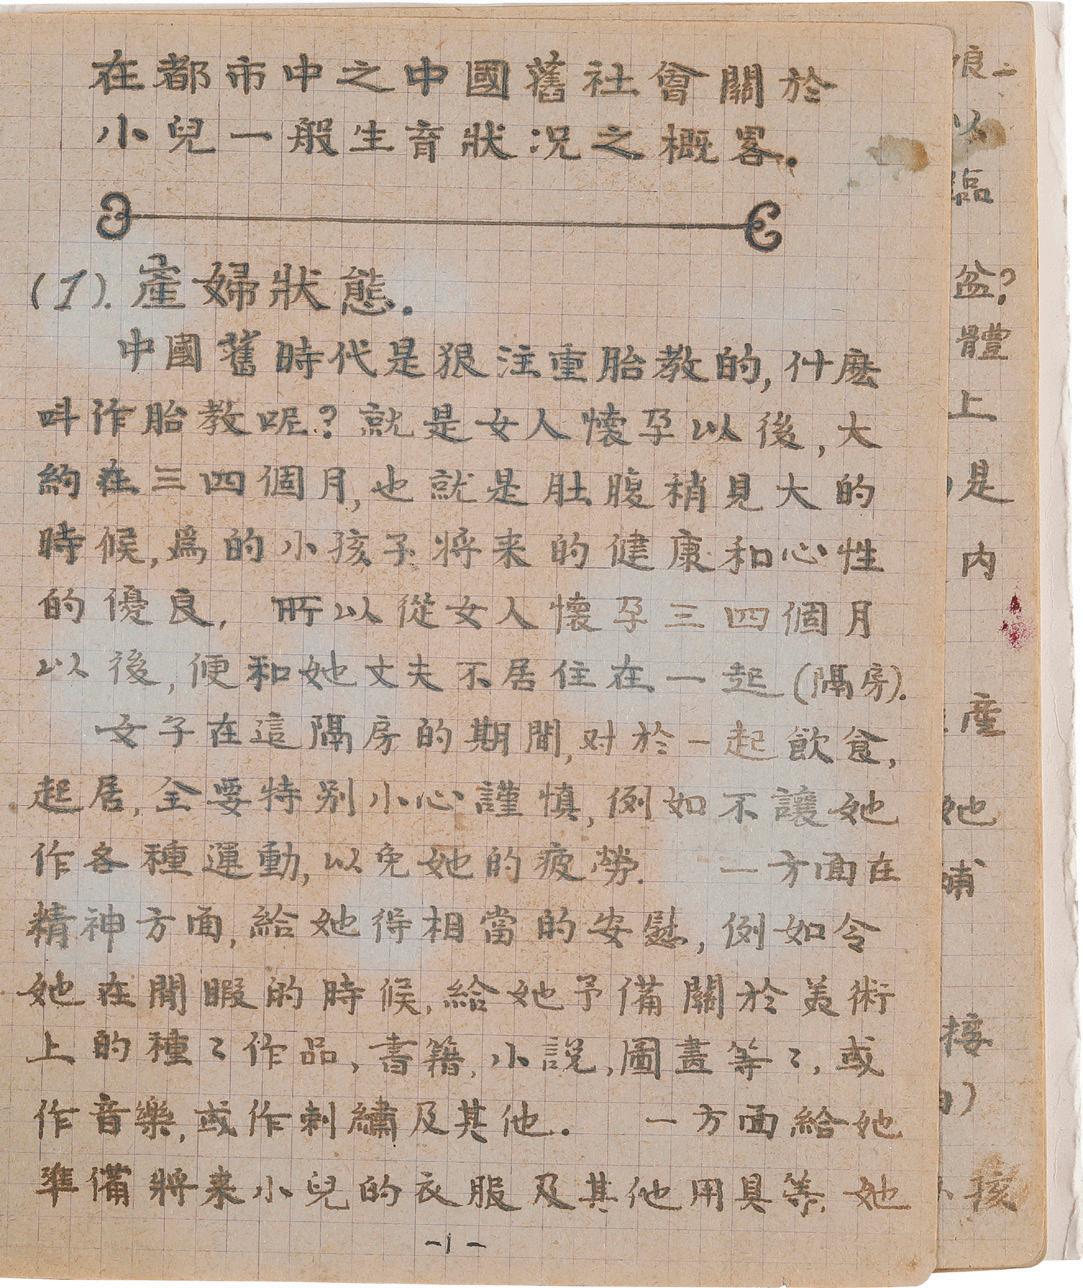 在都市中之中國舊社會關於
小兒一般生育狀况之概畧.
(1). 產婦狀態.
中國舊時代是狠注重胎教的, 什麽
呌作胎教呢? 就是女人懷孕以後, 大
約在三四個月, 也就是肚腹稍見大的
時候, 爲的小孩子將来的健康和心性
的優良, 所以從女人懷孕三四個月
以後, 便和她丈夫不居住在一起 (隔房).
女子在這隔房的期間, 对於一起飲食,
起居, 全要特别小心謹慎, 例如不讓她
作各種運動, 以免她的疲勞. 一方面在
精神方面, 給她得相當的安慰, 例如令
她在閒暇的時候, 給她予備關於美術
上的種〻作品, 書籍, 小説, 圖畫等〻, 或
作音樂, 或作刺繡及其他. 一方面給她
準備將来小兒的衣服及其他用具等, 她
-1-
以
臨
盆?
體
上
是
内
産
她
補
接
孩